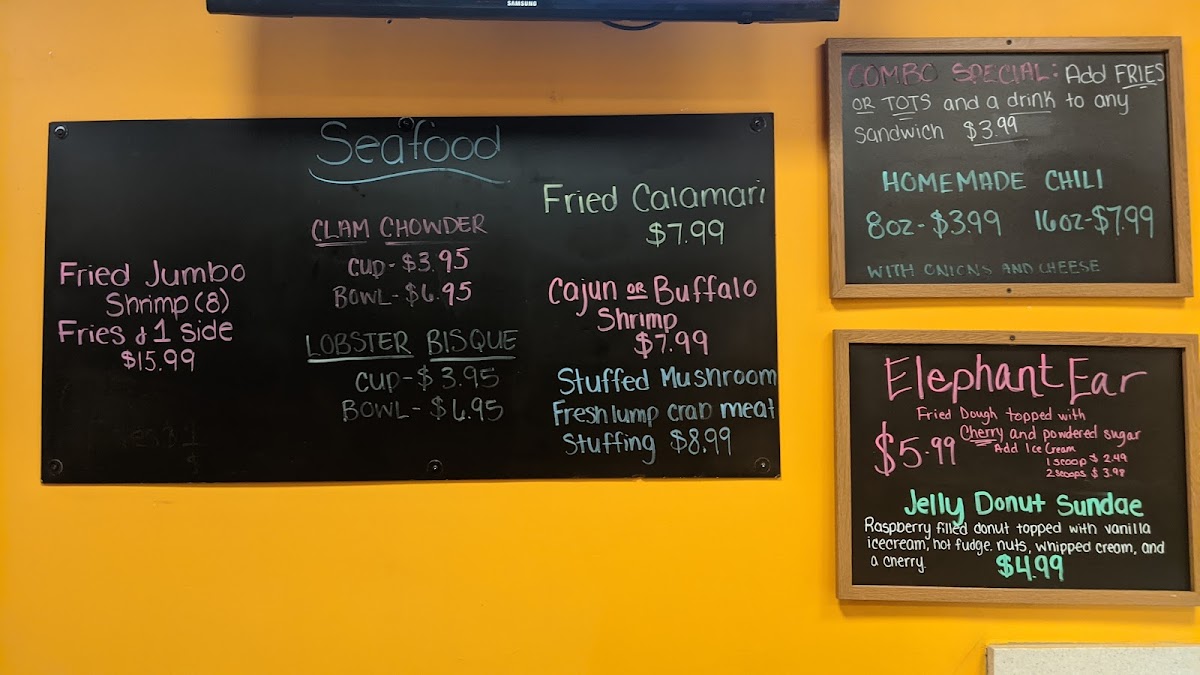 SAMSUNG
Seafood
Fried Jumbo
Shrimp (8)
Fries & 1 side
$15.99
CLAM CHOWDER
CUP - $3.95
BOWL - $6.95
LOBSTER BISQUE
CUP - $3.95
BOWL - $6.95
Fried Calamari
$7.99
Cajun OR Buffalo
Shrimp
$7.99
Stuffed Mushroom
Fresh lump crab meat
Stuffing $8.99
COMBO SPECIAL: Add FRIES
OR TOTS and a drink to any
sandwich $3.99
HOMEMADE CHILI
8oz - $3.99 16oz - $7.99
WITH ONIONS AND CHEESE
Elephant Ear
Fried Dough topped with
$5.99 Cherry and powdered sugar
Add Ice Cream
1 scoop $ 2.49
2 scoops $ 3.98
Jelly Donut Sundae
Raspberry filled donut topped with vanilla
icecream, hot fudge. nuts, whipped cream, and
a cherry.
$4.99